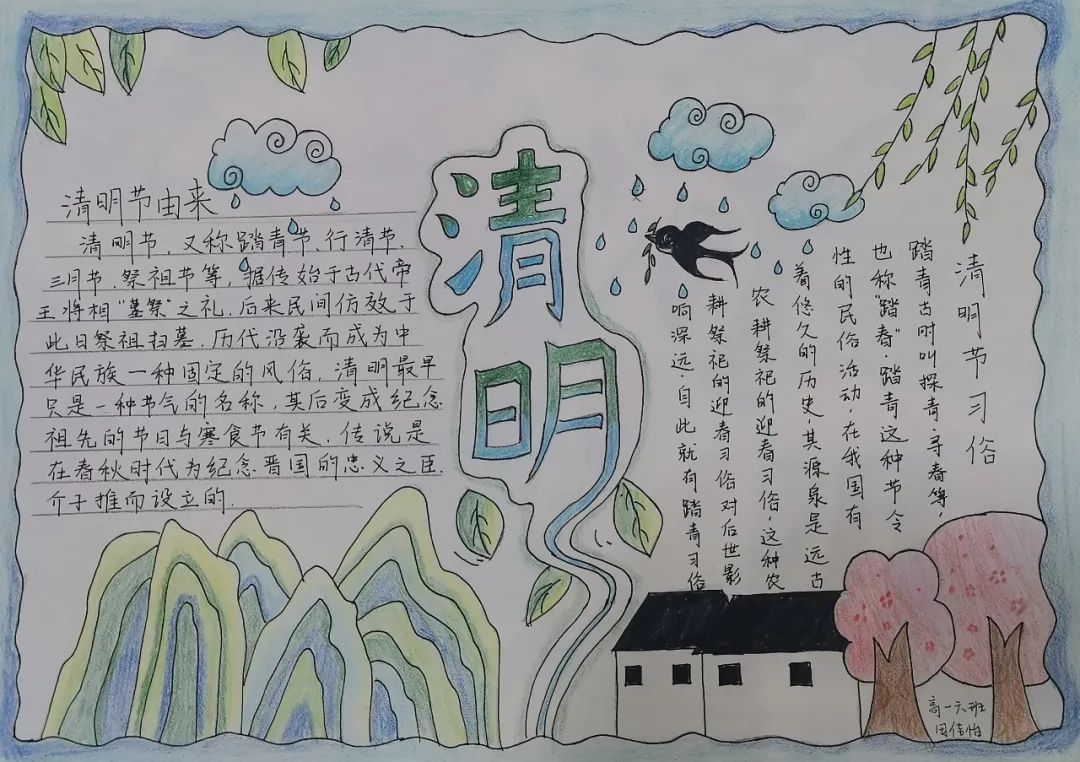 清明
清明节由来
清明节,又称踏青节、行清节、
三月节、祭祖节等,据传始于古代帝
王将相“墓祭”之礼,后来民间仿效,于
此日祭祖扫墓,历代沿袭而成为中
华民族一种固定的风俗,清明最早
只是一种节气的名称,其后变成纪念
祖先的节日与寒食节有关,传说是
在春秋时代为纪念晋国的忠义之臣
介子推而设立的.
清明节习俗
踏青古时叫探青、寻春等,
也称“踏春”,踏青这种节令
性的民俗活动,在我国有
着悠久的历史,其源泉是远古
农耕祭祀的迎春习俗,这种农
耕祭祀的迎春习俗对后世影
响深远,自此就有踏青习俗
高一六班